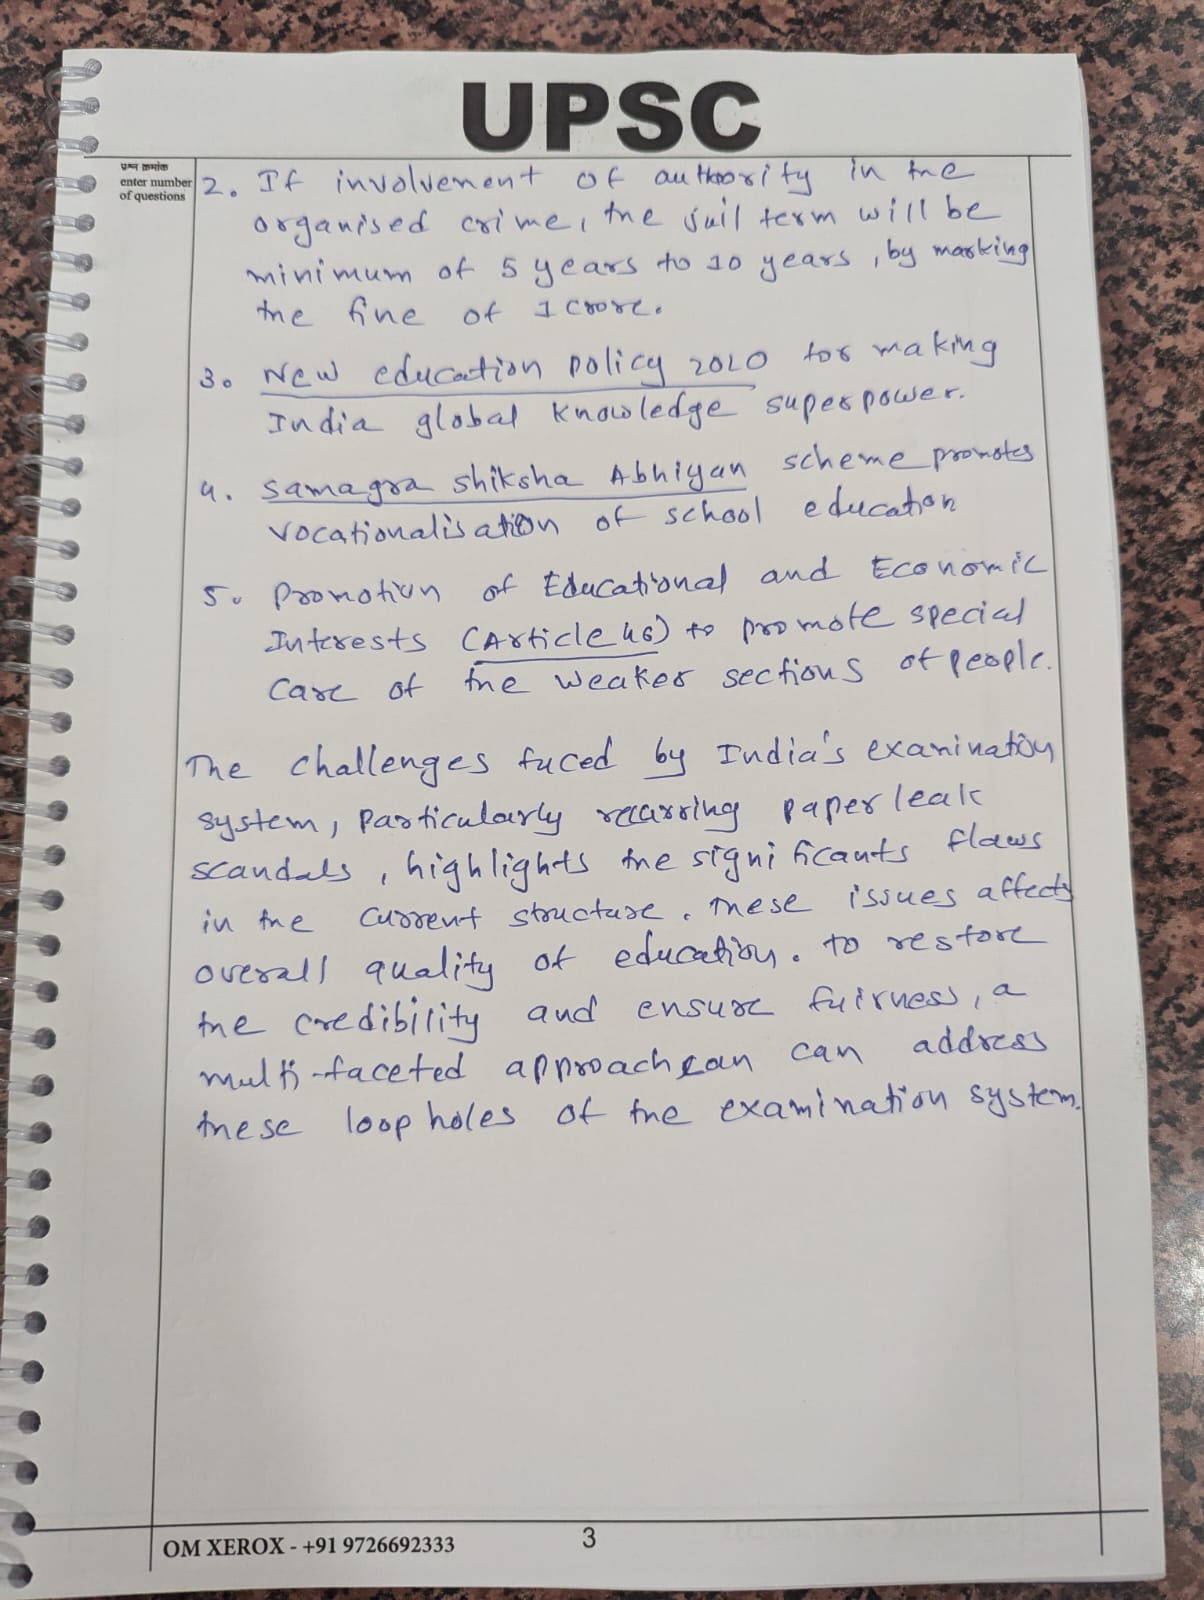 UPSC
प्रश्न क्रमांक
enter number
of questions
2. If involvement of authority in the
organised crime, the jail term will be
minimum of 5 years to 10 years, by marking
the fine of 1 crore.
3. New education policy 2020 for making
India global knowledge superpower.
4. Samagra shiksha Abhiyan scheme promotes
vocationalisation of school education
5. Promotion of Educational and Economic
Interests (Article 46) to promote special
care of the weaker sections of people.
The challenges faced by India's examination
system, particularly recurring paper leak
scandals, highlights the significants flaws
in the current structure. These issues affects
overall quality of education. to restore
the credibility and ensure fairness, a
multi-faceted approach can can address
these loop holes of the examination system.
OM XEROX - +91 9726692333
3